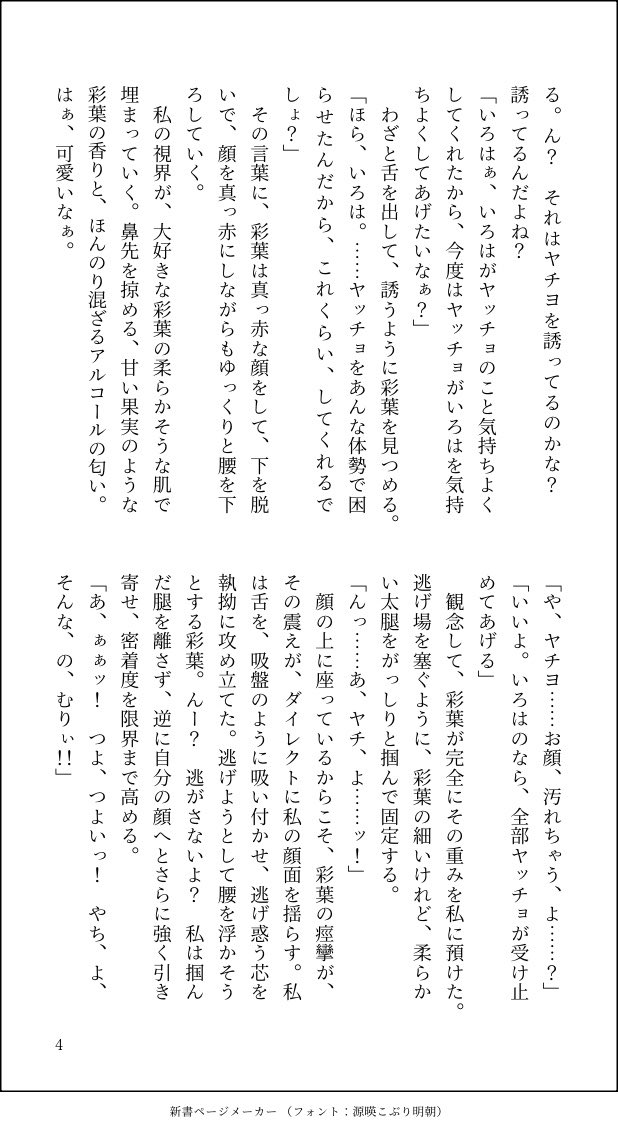 る。ん？　それはヤチヨを誘ってるのかな？
誘ってるんだよね？
「いろはぁ、いろはがヤッチョのこと気持ちよく
してくれたから、今度はヤッチョがいろはを気持
ちよくしてあげたいなぁ？」
　わざと舌を出して、誘うように彩葉を見つめる。
「ほら、いろは。……ヤッチョをあんな体勢で困
らせたんだから、これくらい、してくれるで
しょ？」
　その言葉に、彩葉は真っ赤な顔をして、下を脱
いで、顔を真っ赤にしながらもゆっくりと腰を下
ろしていく。
　私の視界が、大好きな彩葉の柔らかそうな肌で
埋まっていく。鼻先を掠める、甘い果実のような
彩葉の香りと、ほんのり混ざるアルコールの匂い。
はぁ、可愛いなぁ。
「や、ヤチヨ……お顔、汚れちゃう、よ……？」
「いいよ。いろはのなら、全部ヤッチョが受け止
めてあげる」
　観念して、彩葉が完全にその重みを私に預けた。
逃げ場を塞ぐように、彩葉の細いけれど、柔らか
い太腿をがっしりと掴んで固定する。
「んっ……あ、ヤチ、よ……ッ！」
　顔の上に座っているからこそ、彩葉の痙攣が、
その震えが、ダイレクトに私の顔面を揺らす。私
は舌を、吸盤のように吸い付かせ、逃げ惑う芯を
執拗に攻め立てた。逃げようとして腰を浮かそう
とする彩葉。んー？　逃がさないよ？　私は掴ん
だ腿を離さず、逆に自分の顔へとさらに強く引き
寄せ、密着度を限界まで高める。
「あ、ぁぁッ！　つよ、つよいっ！　やち、よ、
そんな、の、むりぃ!!」
4
新書ページメーカー（フォント：源暎こぶり明朝）